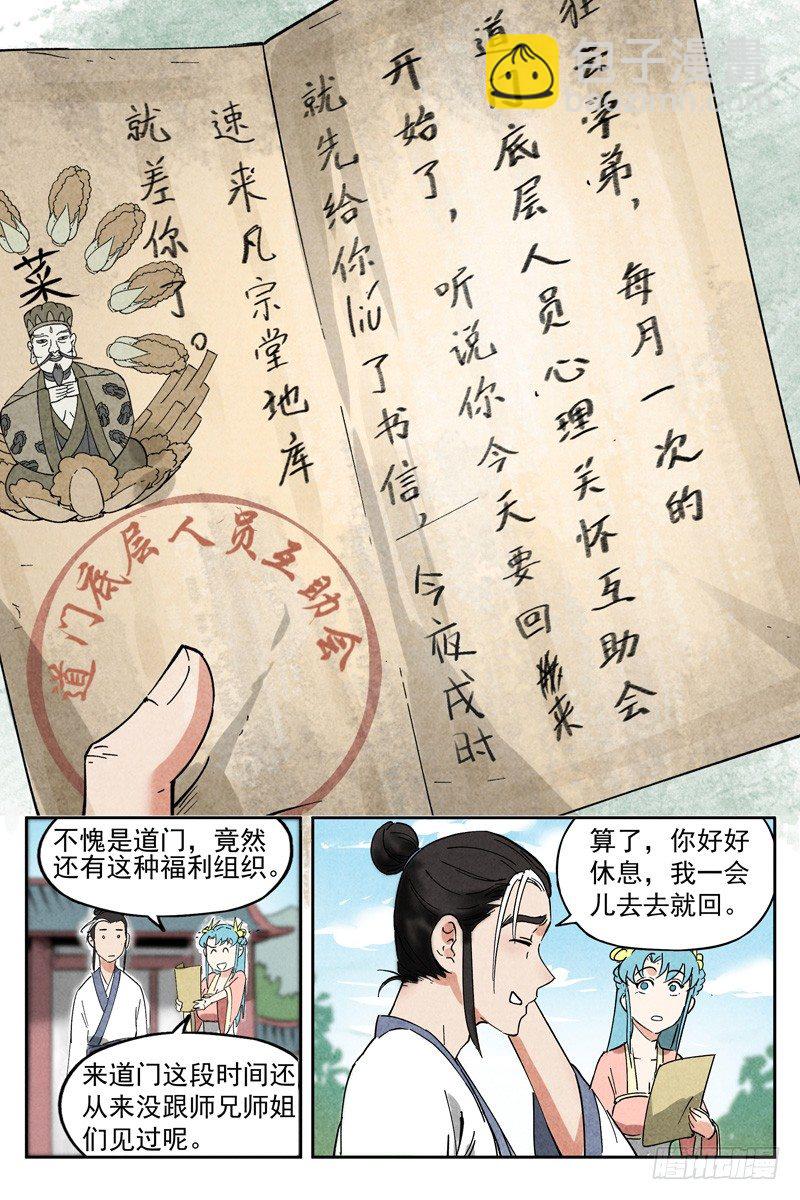 狂曰学弟，每月一次的
道门底层人员心理关怀互助会
开始了，听说你今天要回来
就先给你liú了书信，今夜戌时
速来凡宗堂地库
就差你了。
菜
道门底层人员互助会
包子漫畫
baozimh.com
不愧是道门，竟然
还有这种福利组织。
来道门这段时间还
从来没跟师兄师姐
们见过呢。
算了，你好好
休息，我一会
儿去去就回。